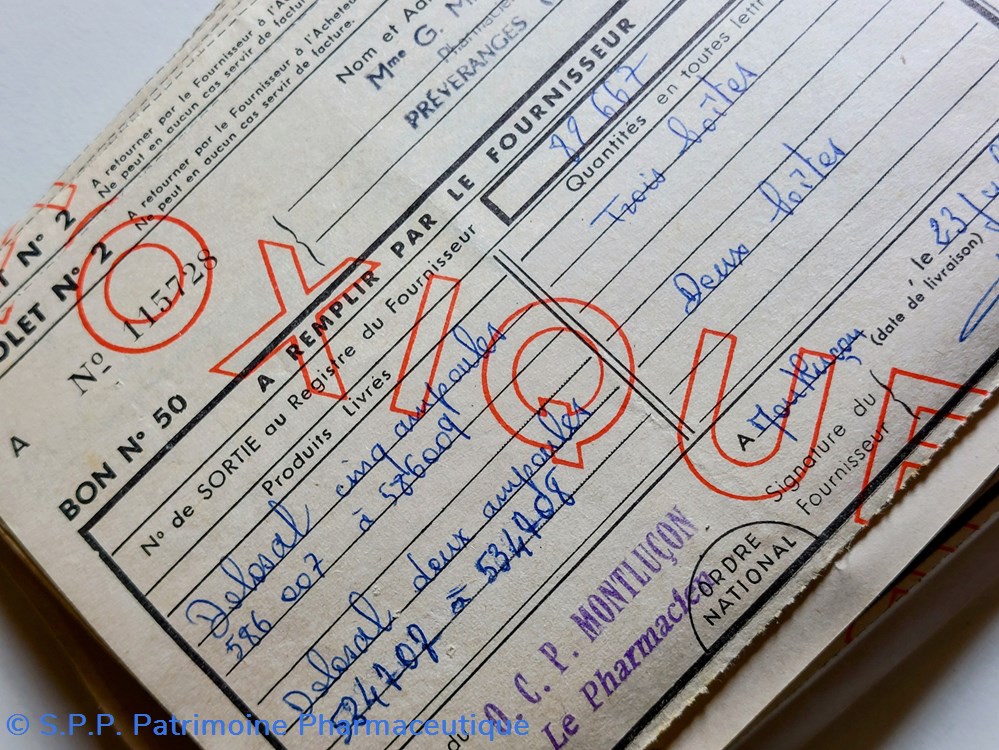 A retourner par le Fournisseur à l'Acheteur
Ne peut en aucun cas servir de facture.
A retourner par le Fournisseur à l'Acheteur
Ne peut en aucun cas servir de facture.
Nom et
Mme G.
Pharmacien
PRÉVERANGES
T N° 2
OLET N° 2
TOXIQUE
Nº 115728
A
BON N° 50
A REMPLIR PAR LE FOURNISSEUR
N° de SORTIE au Registre du Fournisseur
99 667
Produits Livrés
Quantités en toutes lettr
Delosal cinq ampoules
Trois boîtes
586 007 à 586009
Delosal deux ampoules
Deux boîtes
534707 à 534708
A Montluçon
le 23/
(date de livraison)
Signature du
Fournisseur
ORDRE
NATIONAL
du
O. C. P. MONTLUÇON
Le Pharmacien
© S.P.P. Patrimoine Pharmaceutique